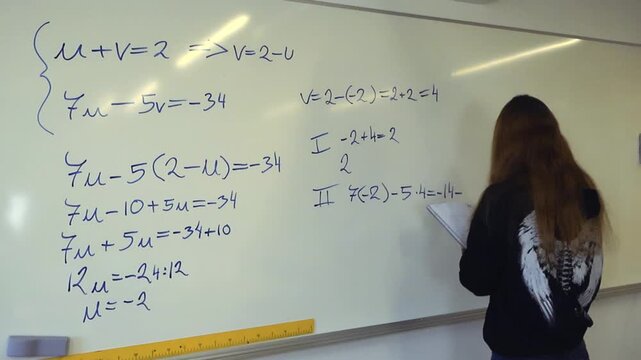 u+v=2 => v=2-u
7u-5v=-34
7u-5(2-u)=-34
7u-10+5u=-34
7u+5u=-34+10
12u=-24:12
u=-2
v=2-(-2)=2+2=4
I -2+4=2
2
II 7(-2)-5·4=-14-